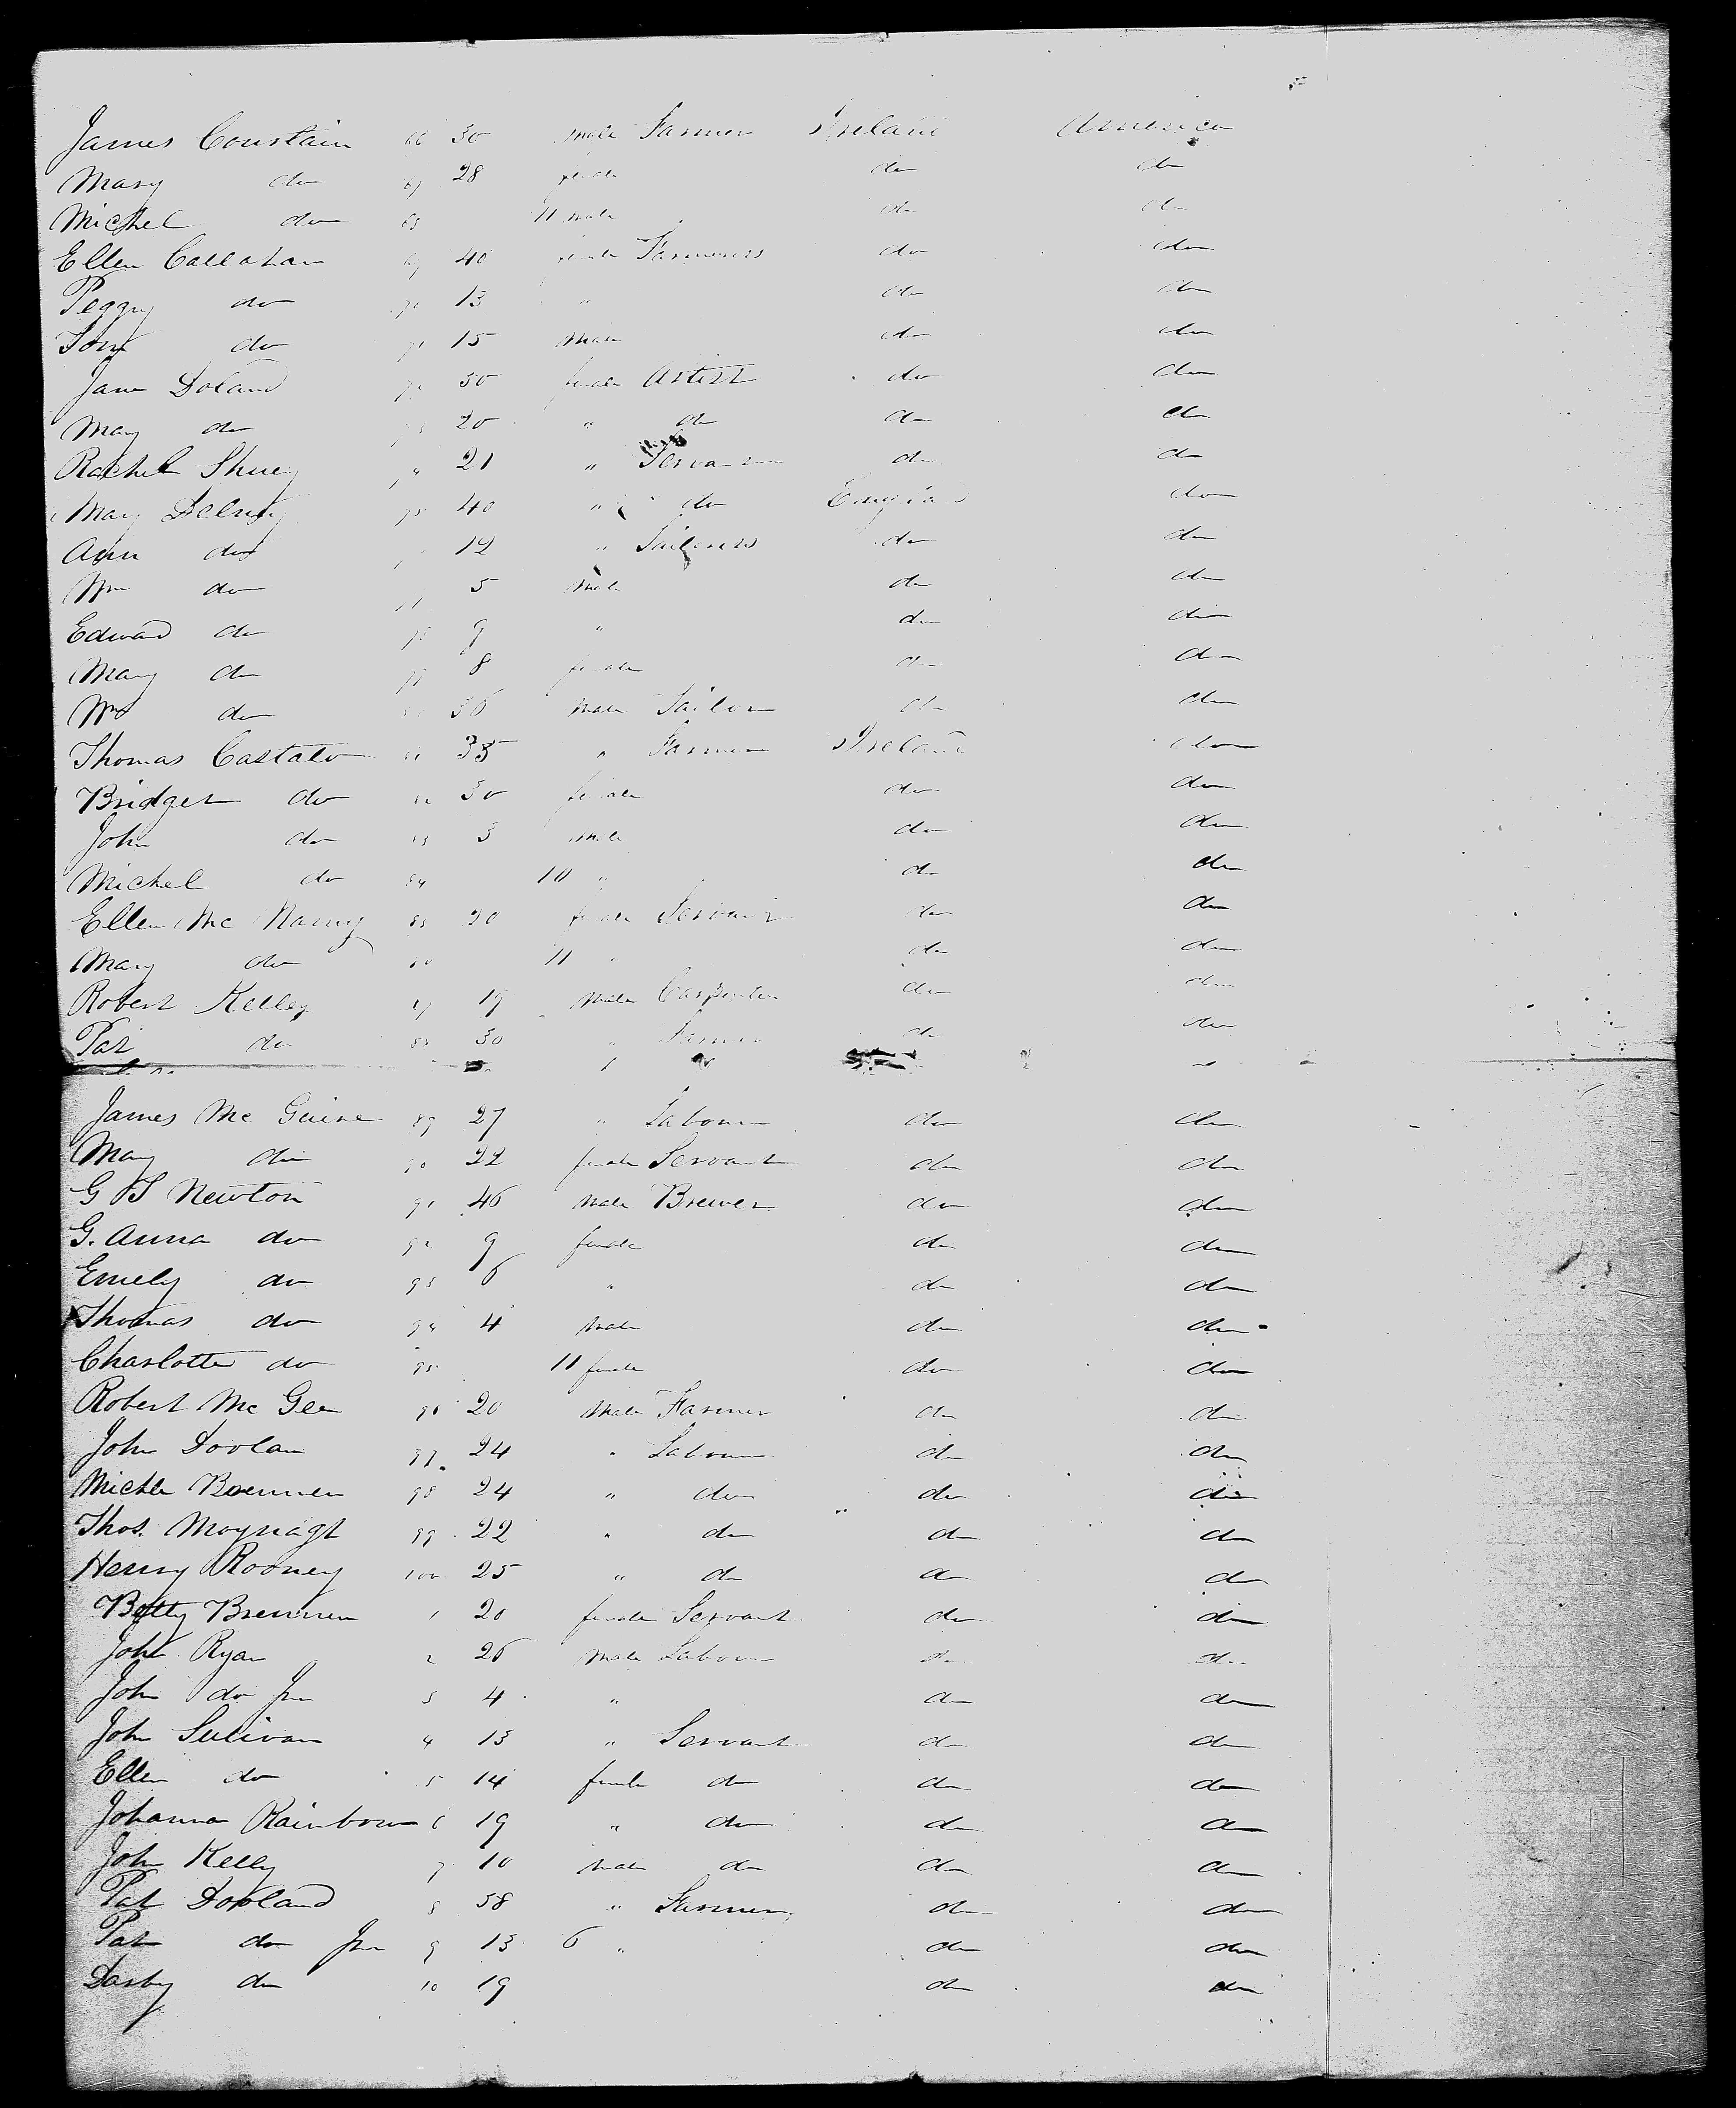 James Courtain 66 30 male Farmer Ireland America
Mary do 67 28 female do do
Michel do 68 11 male do do
Ellen Callahan 69 40 female Farmeress do do
Peggy do 70 13 " do do
Tom do 71 15 male do do
Jane Doland 72 50 female Artist do do
Mary do 20 " do do do
Rachel 21 " Servant do do
Mary Delney 75 40 " do England do
Ann do 12 " Tailoress do do
Wm do 5 male do do
Edward do 78 9 " do do
Mary do 79 8 female do do
Wm do 36 male Tailor do do
Thomas Castalo 81 35 " Farmer Ireland do
Bridget do 82 30 female do do
John do 83 3 male do do
Michel do 84 10 " do do
Ellen Mc Namy 85 20 female Servant do do
Mary do 86 11 " do do
Robert Kelley 87 19 male Carpenter do do
Pat do 88 30 " Farmer do do
James Mc Guire 89 27 " Labourer do do
Mary do 90 22 female Servant do do
G S Newton 91 46 male Brewer do do
G. Anna do 92 9 female do do
Emely do 93 6 " do do
Thomas do 94 4 male do do
Charlotte do 95 11 female do do
Robert Mc Gee 96 20 male Farmer do do
John Doolan 97 24 " Labourer do do
Michle Brennen 98 24 " do do do
Thos. Moynagh 99 22 " do do do
Henry Rooney 100 25 " do do do
Betty Brennen 1 20 female Servant do do
John Ryan 2 26 male Labourer do do
John do Jnr 3 4 " do do
John Sulivan 4 13 " Servant do do
Ellen do 5 14 female do do do
Johanna Rainbow 6 19 " do do do
John Kelly 7 10 male do do do
Pat Dooland 8 58 " Farmer do do
Pat do Jnr 9 13 6 " do do
Darby do 10 19 do do